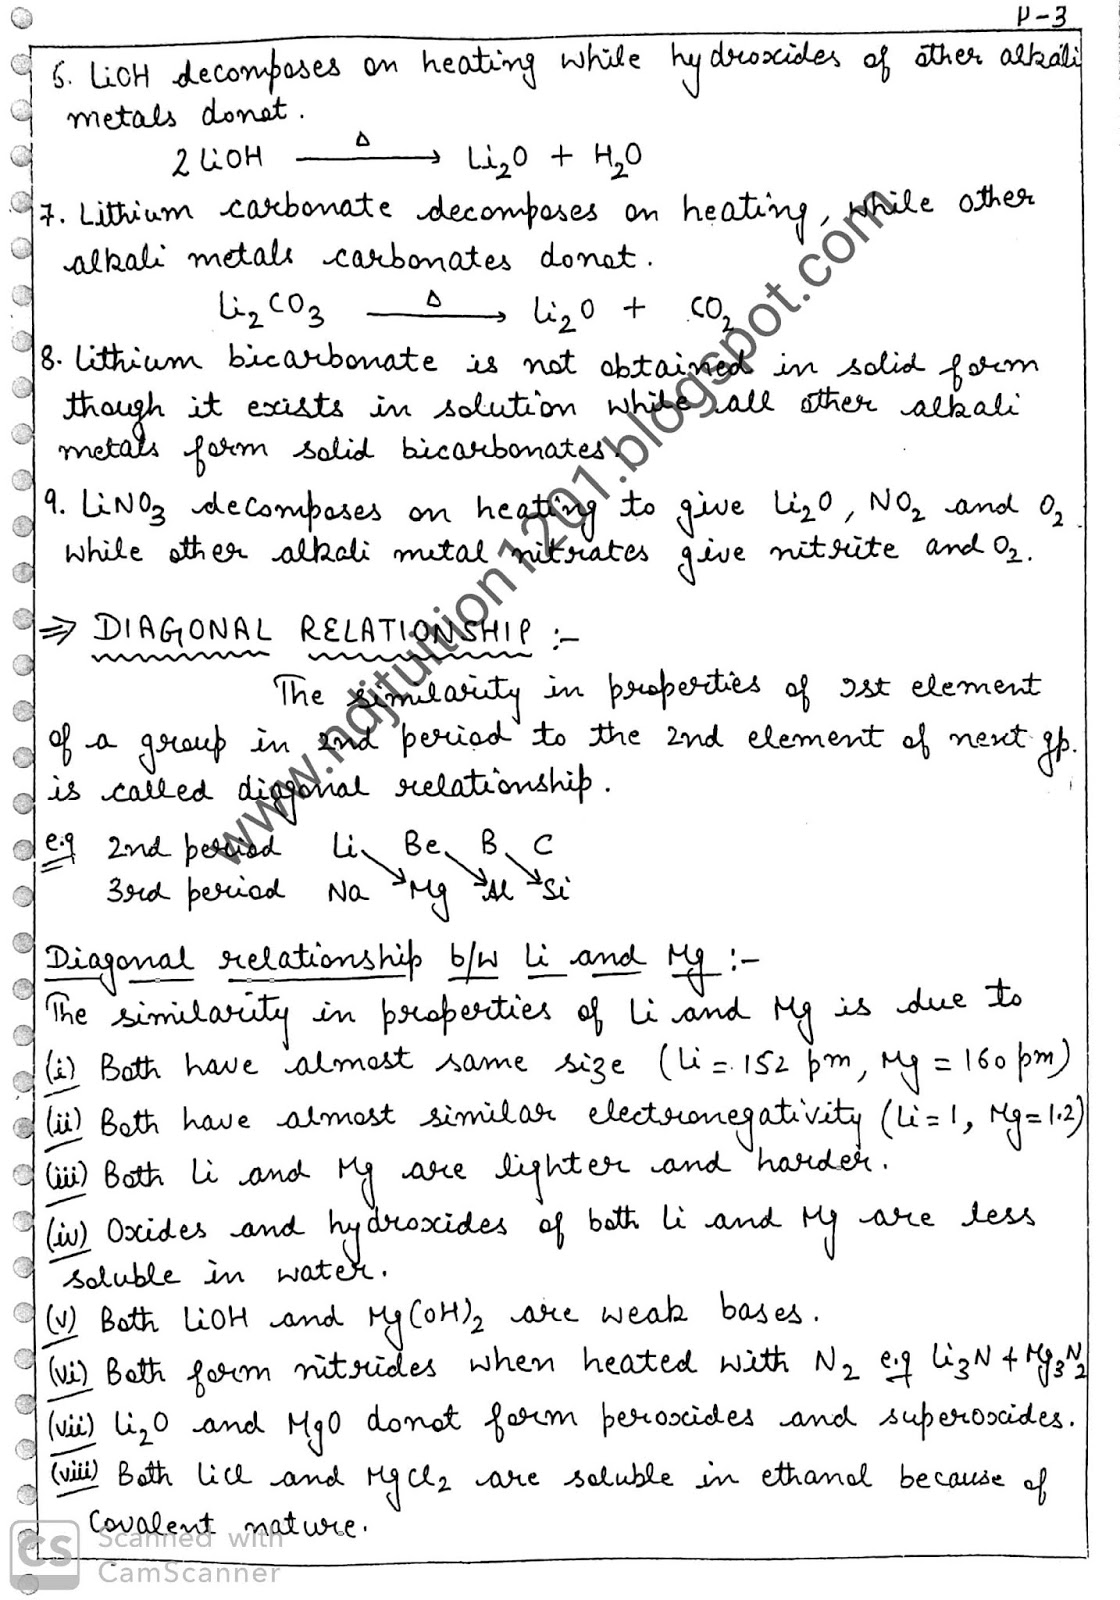 P-3
6. LiOH decomposes on heating while hydroxides of other alkali
metals donot.
2LiOH —Δ→ Li₂O + H₂O
7. Lithium carbonate decomposes on heating, while other
alkali metals carbonates donot.
Li₂CO₃ —Δ→ Li₂O + CO₂
8. Lithium bicarbonate is not obtained in solid form
though it exists in solution while all other alkali
metals form solid bicarbonates.
9. LiNO₃ decomposes on heating to give Li₂O, NO₂ and O₂
while other alkali metal nitrates give nitrite and O₂.
⇒ DIAGONAL RELATIONSHIP :-
The similarity in properties of Ist element
of a group in 2nd period to the 2nd element of next gp.
is called diagonal relationship.
e.g 2nd period Li Be B C
3rd period Na Mg Al Si
Diagonal relationship b/w Li and Mg :-
The similarity in properties of Li and Mg is due to
(i) Both have almost same size (Li = 152 pm, Mg = 160 pm)
(ii) Both have almost similar electronegativity (Li = 1, Mg = 1.2)
(iii) Both Li and Mg are lighter and harder.
(iv) Oxides and hydroxides of both Li and Mg are less
soluble in water.
(v) Both LiOH and Mg(OH)₂ are weak bases.
(vi) Both form nitrides when heated with N₂ e.g Li₃N + Mg₃N₂
(vii) Li₂O and MgO donot form peroxides and superoxides.
(viii) Both LiCl and MgCl₂ are soluble in ethanol because of
Covalent nature.
www.ndjtuition1201.blogspot.com
CS Scanned with
CamScanner